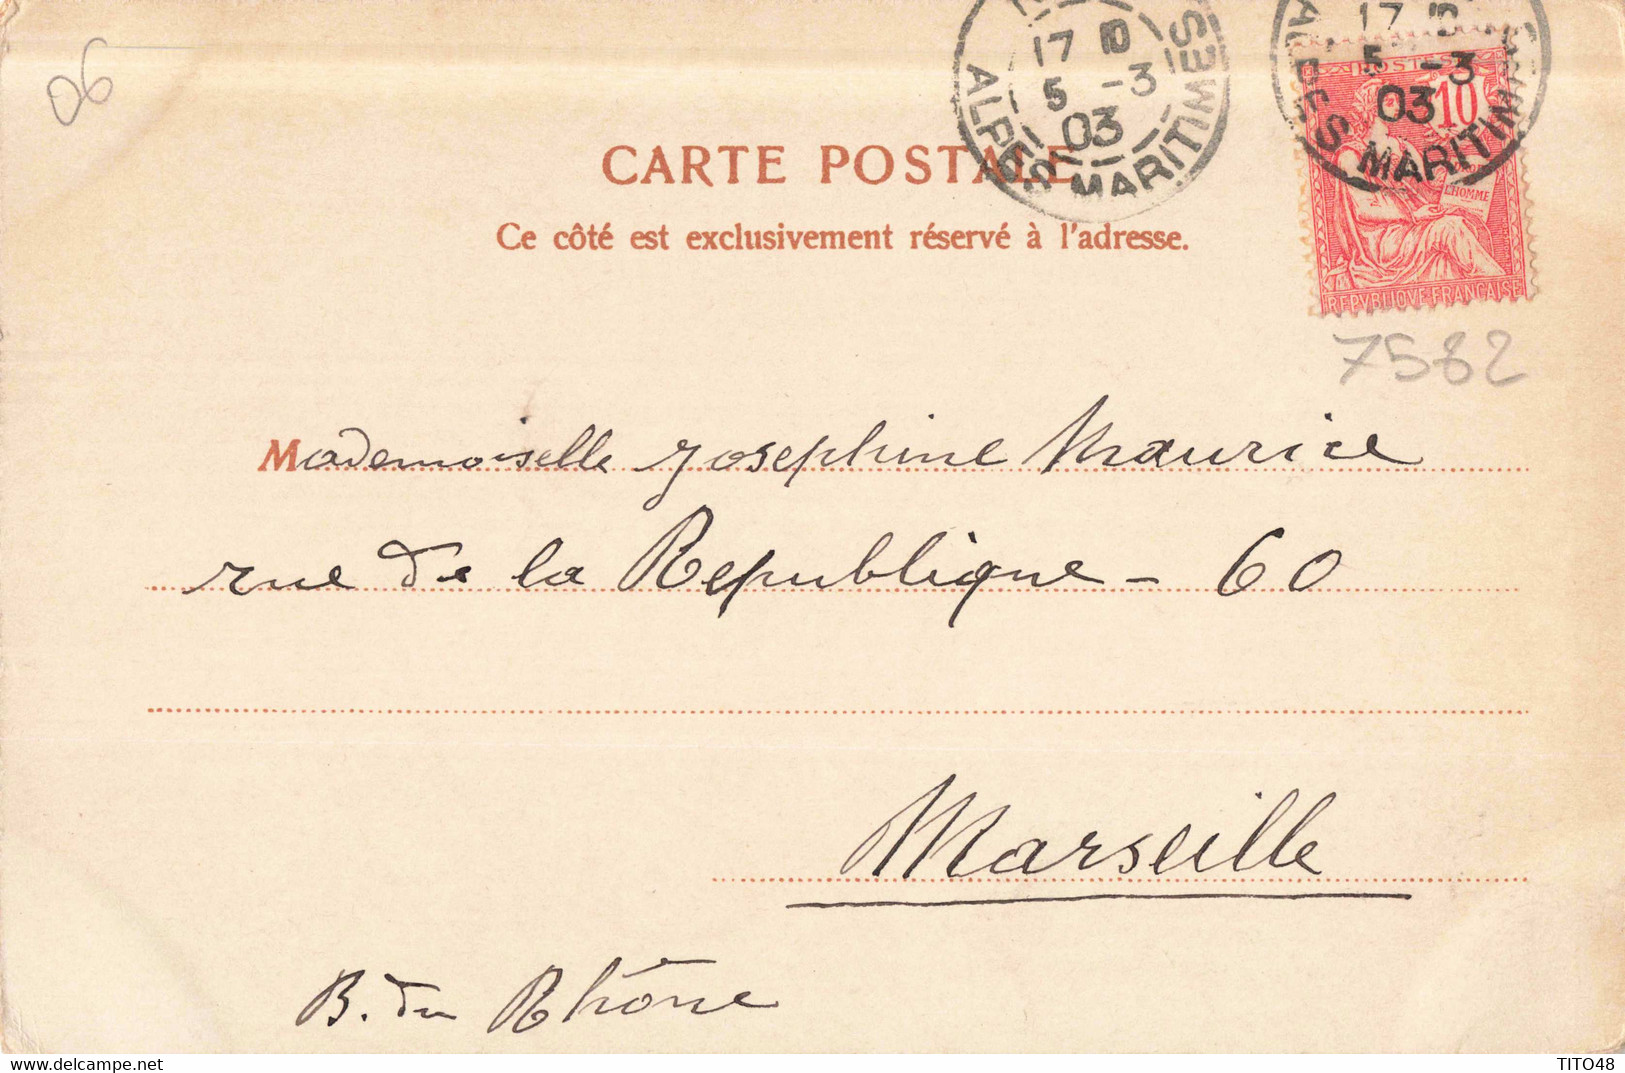 06
17
5 -3
03
ALPES MARITIMES
17
5 -3
03
ALPES MARITIM
POSTES
10
L'HOMME
REPVBLIQVE FRANÇAISE
7582
CARTE POSTALE
Ce côté est exclusivement réservé à l'adresse.
Mademoiselle Josephine Maurice
rue de la Republique - 60
Marseille
B. du Rhône
TITO48